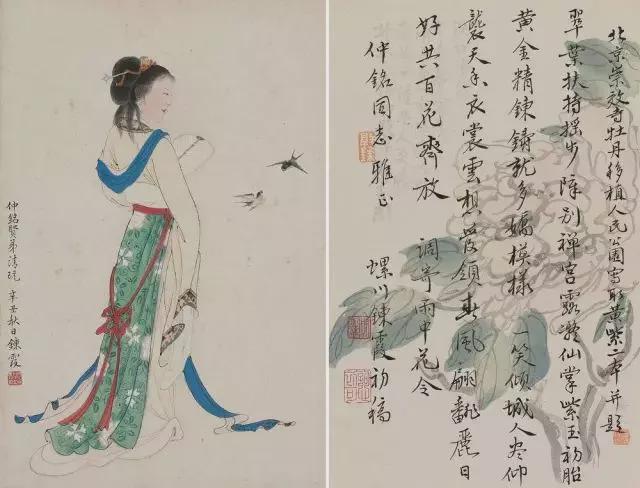 仲銘賢弟清玩
辛丑秋日鍊霞
北京崇效寺牡丹移植人民公園寫黃紫二本并題
翠葉扶持搖步障別禪宮露仙掌紫玉初胎
黃金精鍊鑄就多嬌模樣 一笑傾城人盡仰
襲天香衣裳雲想領春風翩飜麗日
好共百花齊放 調寄雨中花令
仲銘同志雅正
螺川鍊霞初稿